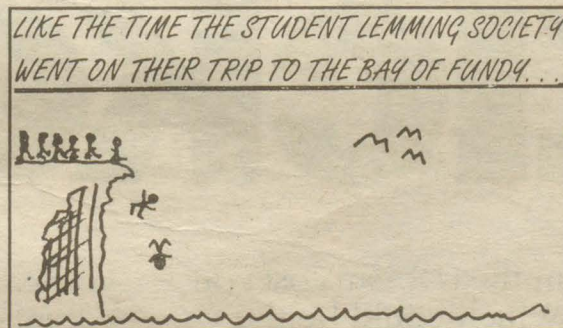 LIKE THE TIME THE STUDENT LEMMING SOCIETY
WENT ON THEIR TRIP TO THE BAY OF FUNDY...